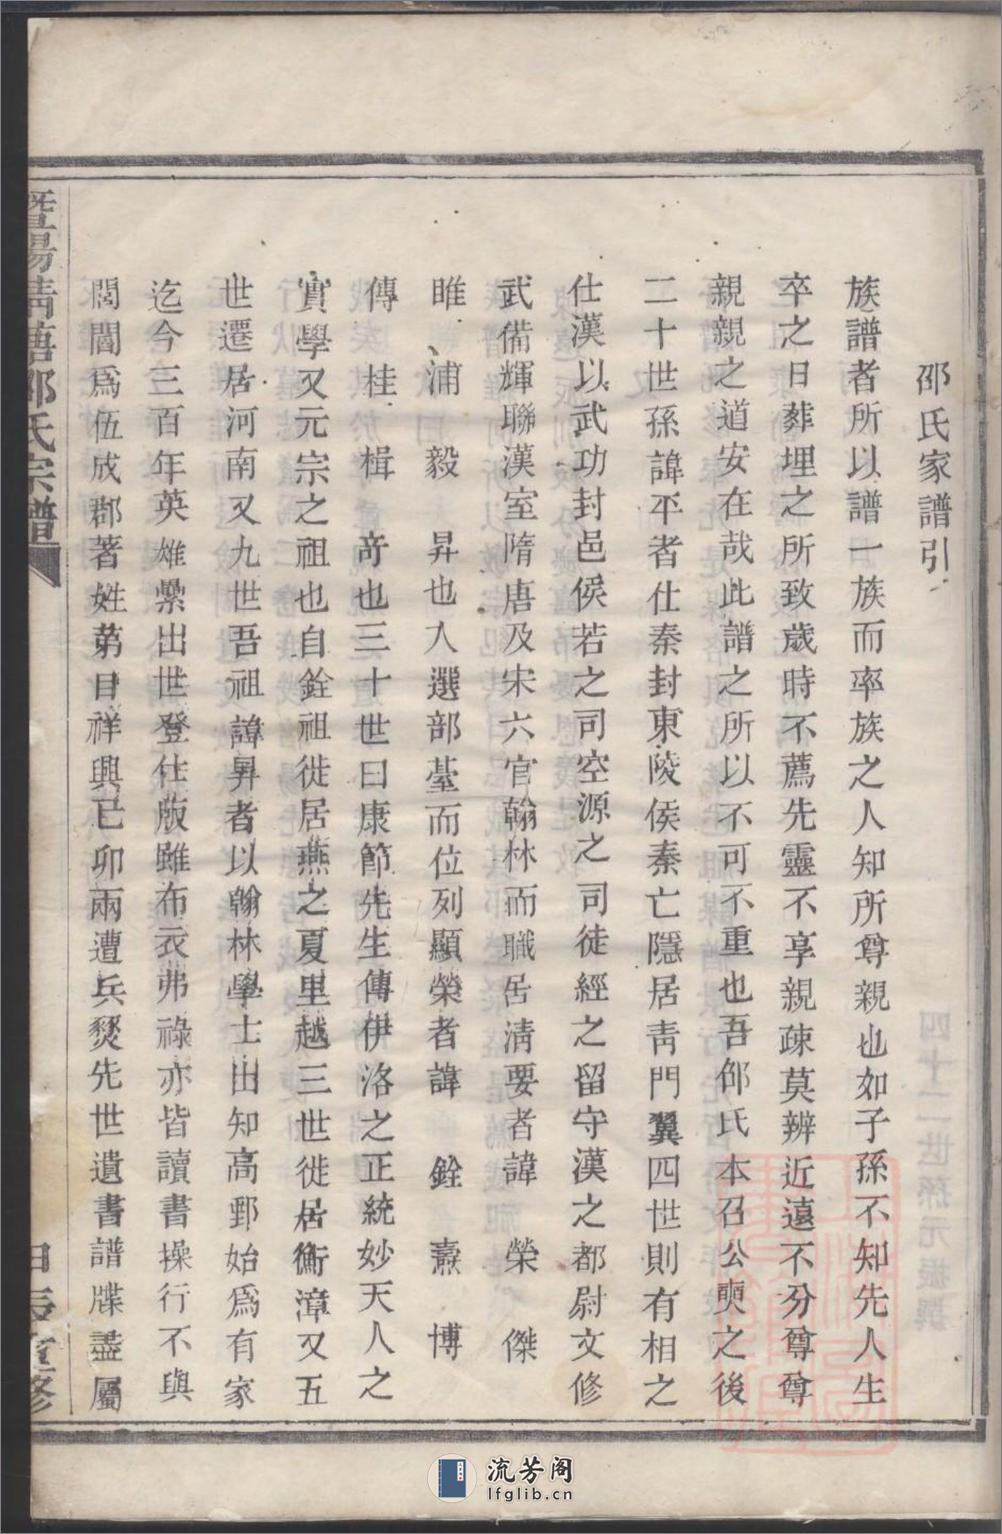 邵氏家譜引
族譜者所以譜一族而率族之人知所尊親也如子孫不知先人生
卒之日葬埋之所致歲時不薦先靈不享親疎莫辨近遠不分尊尊
親親之道安在哉此譜之所以不可不重也吾邵氏本召公奭之後
二十世孫諱平者仕秦封東陵侯秦亡隱居靑門翼四世則有相之
仕漢以武功封邑侯若之司空源之司徒經之留守漢之都尉文修
武備輝聯漢室隋唐及宋六官翰林而職居淸要者諱 榮 傑
睢 浦 毅 昇也入選部臺而位列顯榮者諱 銓 燾 博
傳 桂 楫 竒也三十世曰康節先生傳伊洛之正統妙天人之
實學又元宗之祖也自銓祖徙居燕之夏里越三世徙居衡漳又五
世遷居河南又九世吾祖諱昇者以翰林學士出知高郵始爲有家
迄今三百年英雄纍出世登仕版雖布衣弗祿亦皆讀書操行不與
閥閱爲伍成郡著姓苐目祥興已卯兩遭兵燹先世遺書譜牒盡屬
暨陽靑塘邵氏宗譜
重修
流芳阁
lfglib.cn